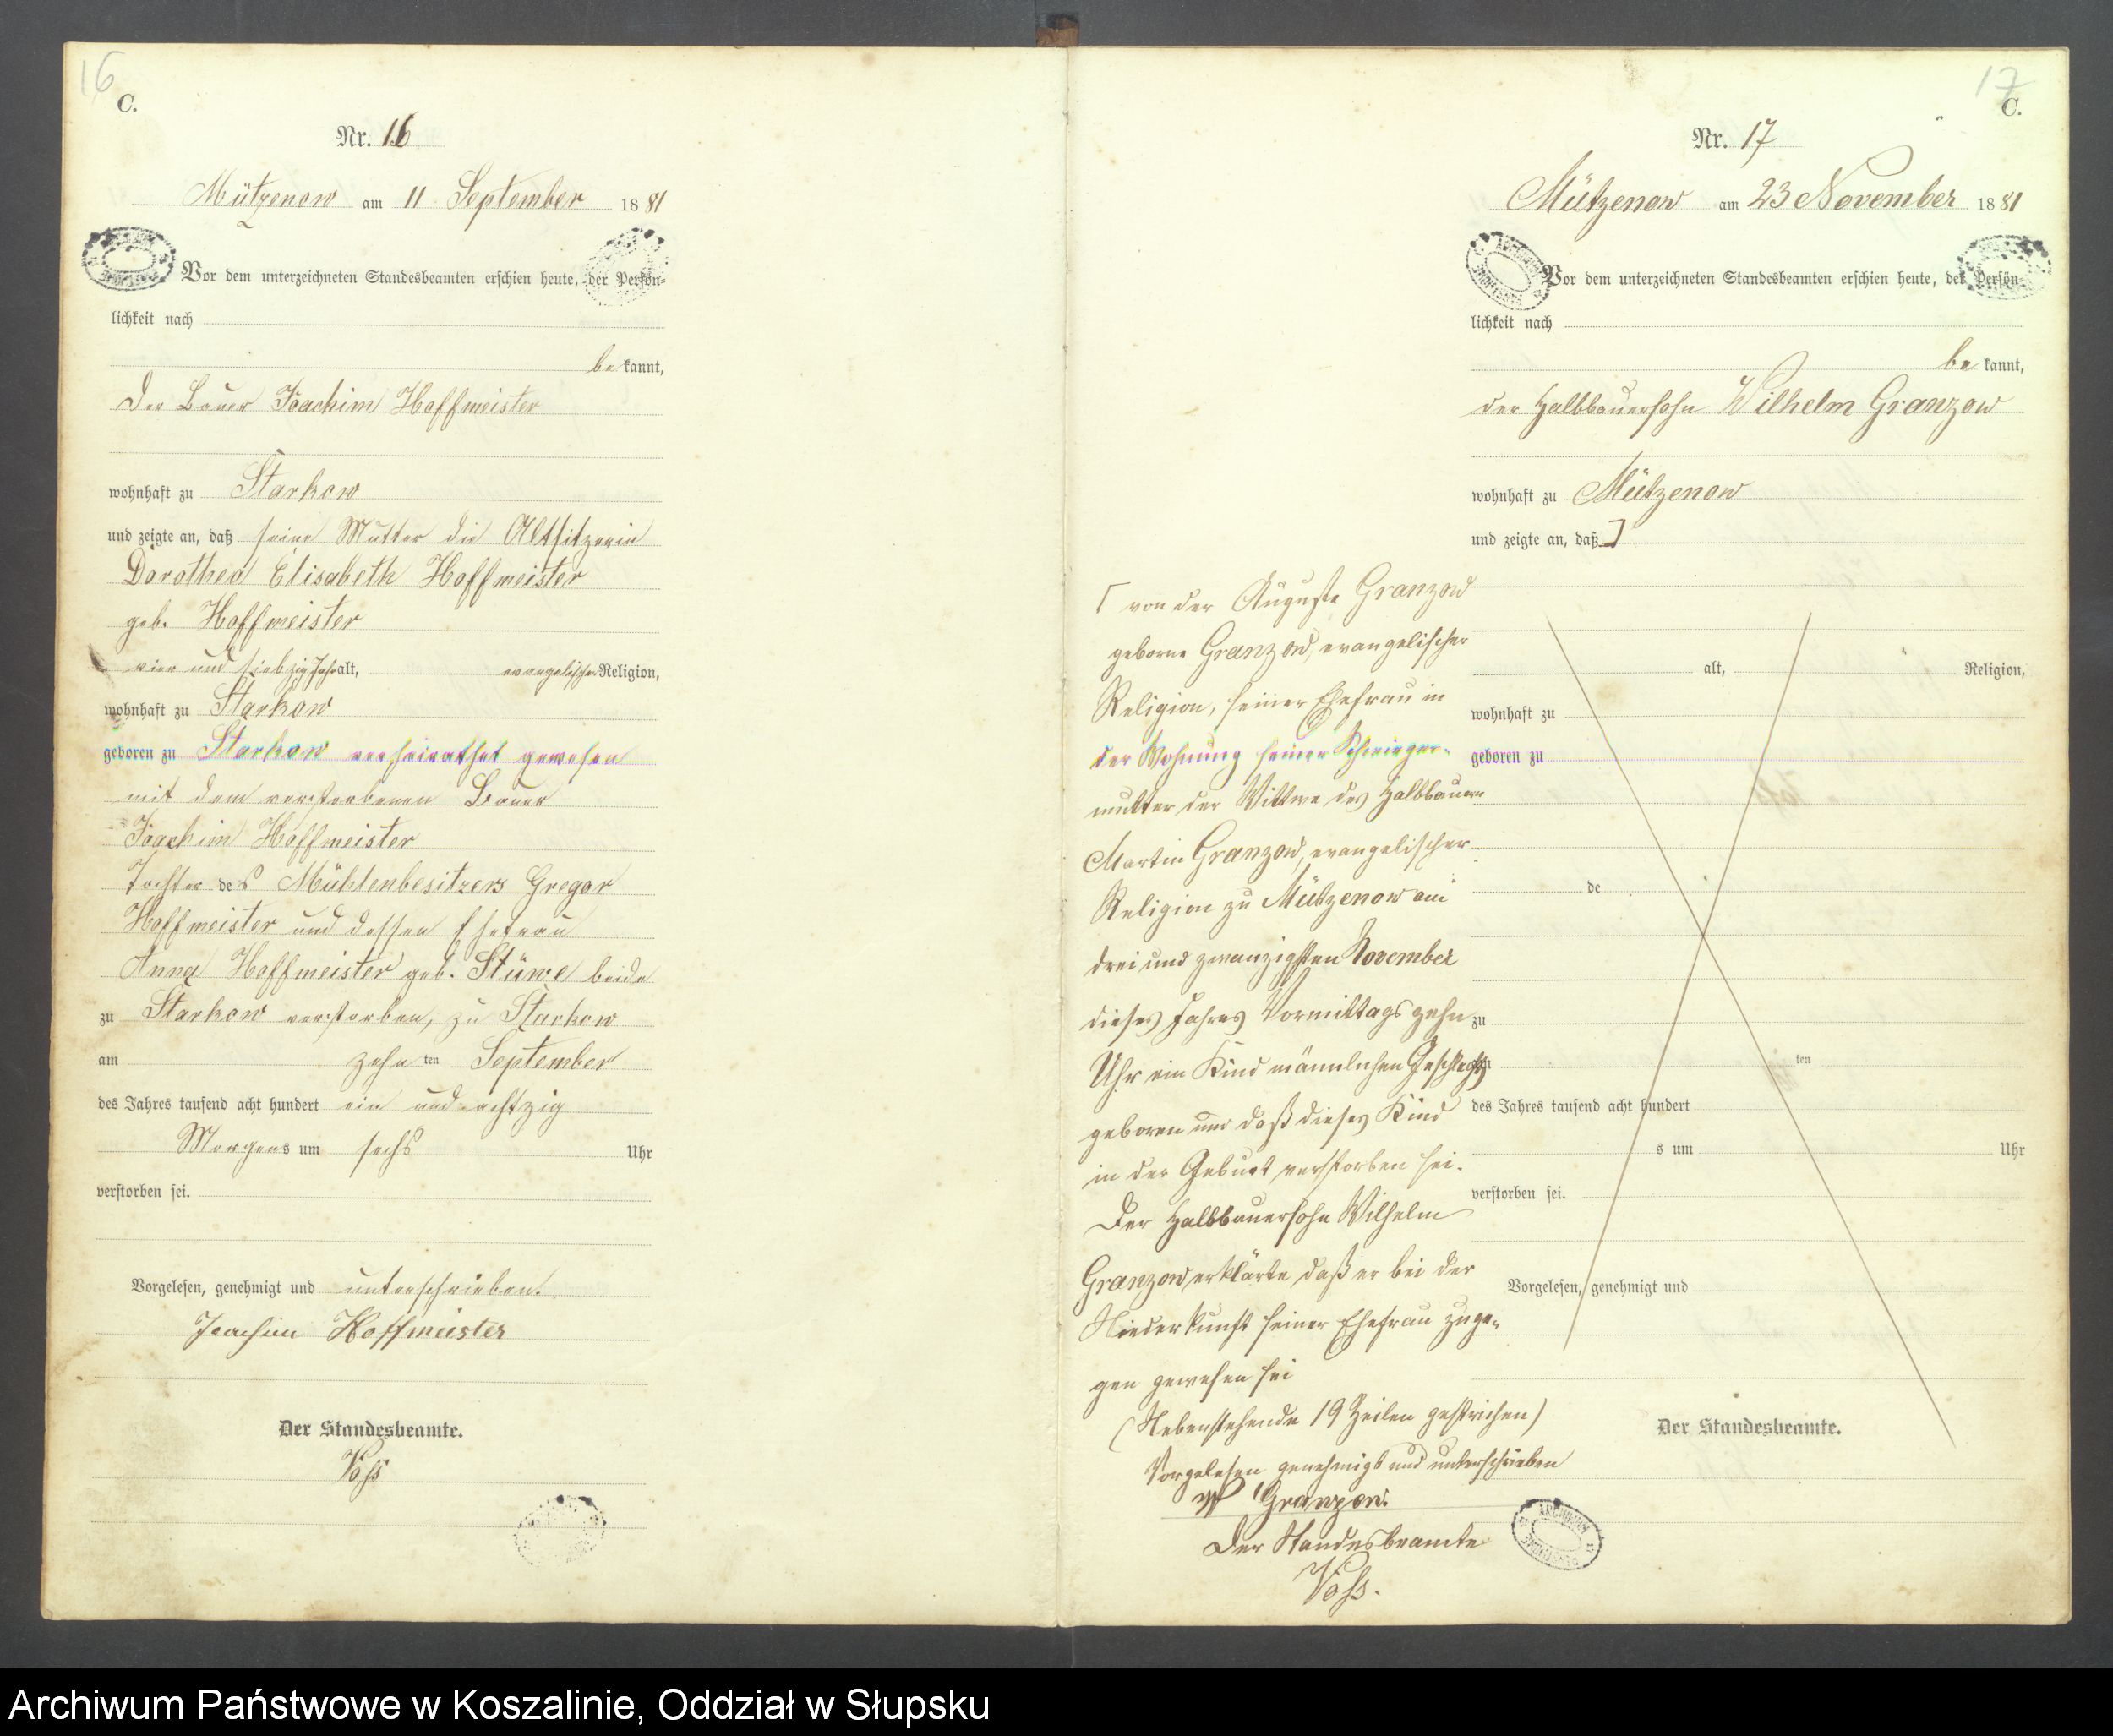 16
C.
Nr. 16
Mützenow am 11 September 1881
Vor dem unterzeichneten Standesbeamten erschien heute, der Persön-
lichkeit nach
be kannt,
der Bauer Joachim Hoffmeister
wohnhaft zu Starkow
und zeigte an, daß seine Mutter die Altsitzerin
Dorothea Elisabeth Hoffmeister
geb. Hoffmeister
vier und siebzig Jahr alt, evangelischer Religion,
wohnhaft zu Starkow
geboren zu Starkow verheirathet gewesen
mit dem verstorbenen Bauer
Joachim Hoffmeister
Tochter des Mühlenbesitzers Gregor
Hoffmeister und dessen Ehefrau
Anna Hoffmeister geb. Stüwe beide
zu Starkow verstorben, zu Starkow
am zehn ten September
des Jahres tausend acht hundert ein und achtzig
Morgens um sechs Uhr
verstorben sei.
Vorgelesen, genehmigt und unterschrieben.
Joachim Hoffmeister
Der Standesbeamte.
Voss
17
C.
Nr. 17
Mützenow am 23 November 1881
Vor dem unterzeichneten Standesbeamten erschien heute, der Persön-
lichkeit nach
be kannt,
der Halbbauersohn Wilhelm Granzow
wohnhaft zu Mützenow
und zeigte an, daß ]
[ von der Auguste Granzow
geborne Granzow, evangelischer
Religion, seiner Ehefrau in
der Wohnung seiner Schwieger-
mutter der Wittwe des Halbbauern
Martin Granzow, evangelischer
Religion zu Mützenow am
drei und zwanzigsten November
dieses Jahres Vormittags zehn
Uhr ein Kind männlichen Geschlechts
geboren und daß dieses Kind
in der Geburt verstorben sei.
Der Halbbauersohn Wilhelm
Granzow erklärte daß er bei der
Niederkunft seiner Ehefrau zuge-
gen gewesen sei
(Nebenstehende 19 Zeilen gestrichen)
Vorgelesen genehmigt und unterschrieben
W Granzow.
Der Standesbeamte
Voss.
alt, Religion,
wohnhaft zu
geboren zu
de
zu
ten
des Jahres tausend acht hundert
s um Uhr
verstorben sei.
Vorgelesen, genehmigt und
Der Standesbeamte.
Archiwum Państwowe w Koszalinie, Oddział w Słupsku